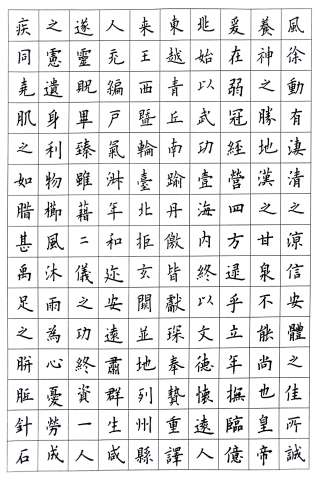 風徐動有淒清之涼信安體之佳所誠
養神之勝地漢之甘泉不能尚也皇帝
爰在弱冠經營四方逮乎立年撫臨億
兆始以武功壹海內終以文德懷遠人
東越青丘南踰丹徼皆獻琛奉贄重譯
来王西暨輪臺北拒玄闕並地列州縣
人充編戶氣淑年和迩安遠肅群生咸
遂靈貺畢臻雖藉二儀之功終資一人
之慮遺身利物櫛風沐雨為心憂勞成
疾同堯肌之如腊甚禹足之胼胝針石